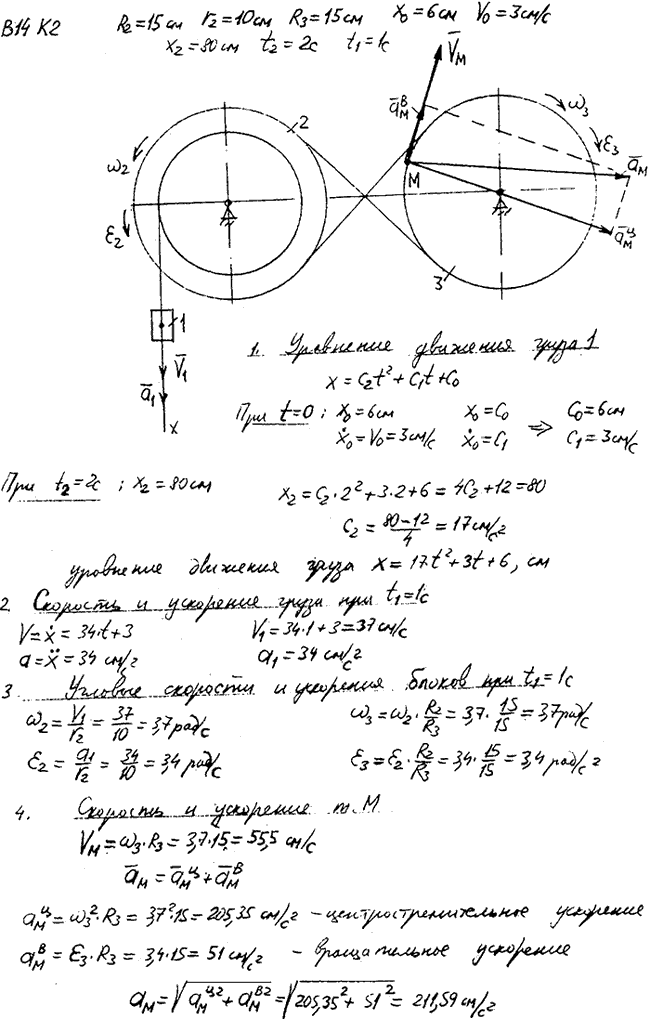 В14 К2 R2=15 см r2=10см R3=15 см x0=6см V0=3см/с
x2=80см t2=2с t1=1с
V̄M
āMᴮ
ω3
ε3
2
ω2
M
āM
ε2
āMᶜ̧ц
3
1
V̄1
ā1
x
1. Уравнение движения груза 1
x=C2t²+C1t+C0
При t=0 : x0=6см x0=C0 ⇒ C0=6см
ẋ0=V0=3см/с ẋ0=C1 C1=3см/с
При t2=2с ; x2=80см x2=C2·2²+3·2+6=4C2+12=80
C2=(80-12)/4=17см/с²
уровнение движения груза x=17t²+3t+6, см
2. Скорость и ускорение груза при t1=1с
V=ẋ=34·t+3 V1=34·1+3=37см/с
a=ẍ=34 см/с² a1=34 см/с²
3 Угловые скорости и ускорения блоков при t1=1с
ω2=V1/r2=37/10=3,7рад/с ω3=ω2·R2/R3=3,7·15/15=3,7рад/с
ε2=a1/r2=34/10=3,4рад/с ε3=ε2·R2/R3=3,4·15/15=3,4рад/с²
4. Скорость и ускорение т.М
VM=ω3·R3=3,7·15=55,5 см/с
āM=āMц+āMᴮ
aMц=ω3²·R3=3,7²·15=205,35 см/с² -центростремительное ускорение
aMᴮ=ε3·R3=3,4·15=51 см/с² - вращательное ускорение
aM=√(aMц²+aMᴮ²)=√(205,35²+51²)=211,59см/с²